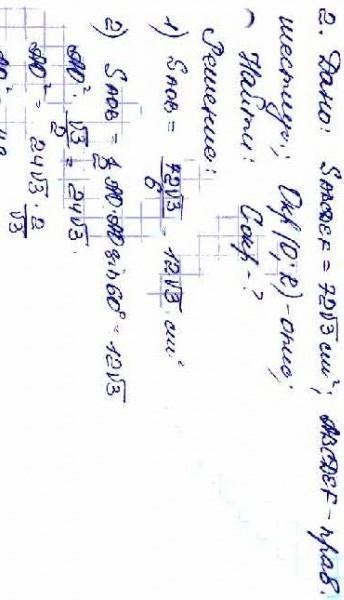 2. Дано: SABCDEF = 72√3 см²; ABCDEF – прав.
шестиуг.; Окр(O; R) – опис;
Найти: Cокр – ?
Решение:
1) SAOB = 72√3/6 = 12√3 см²
2) SAOB = 1/2 AO·AO sin60° = 12√3
AO² · √3/2 = 24√3.
AO² = 24√3·2/√3